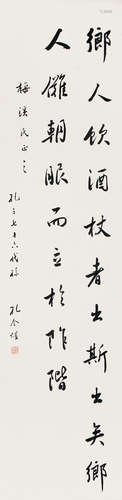 鄉人飲酒杖者出斯出矣鄉
人儺朝服而立於阼階
梅溪氏正之
孔子七十六代孫 孔令